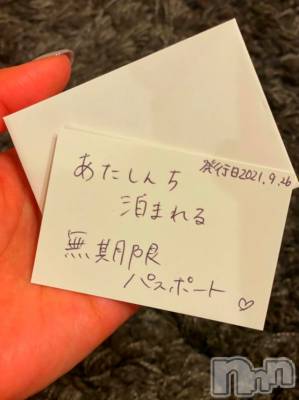 発行日2021.9.26
あたしんち
泊まれる
無期限
パスポート ♡
nnn